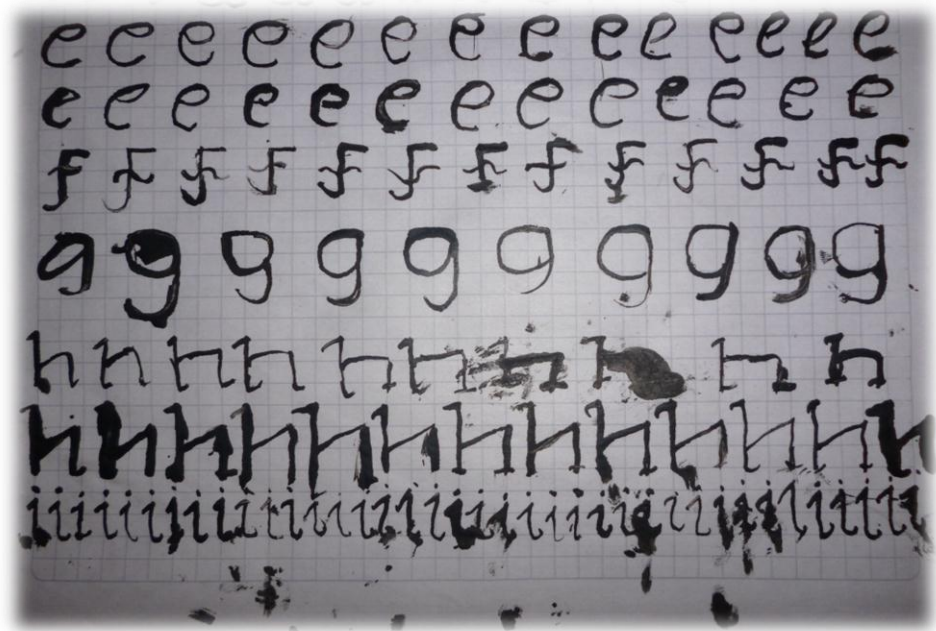 e e e e e e e e e e e e e e
e e e e e e e e e e e e e
f f f f f f f f f f f f f
g g g g g g g g g g
h h h h h h h h h h
h h h h h h h h h h h h h
i i i i i i i i i i i i i i i i i i i i i i i i i i i i i i i i i i i i i i